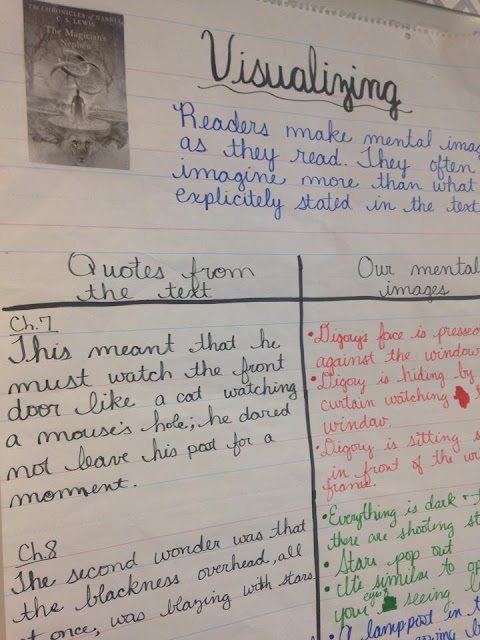 THE CHRONICLES OF NARNIA
C. S. LEWIS
The Magician's
Nephew
Visualizing
Readers make mental imag
as they read. They often
imagine more than what
explicitly stated in the text
Quotes from
the text
Our mental
images
Ch.7
This meant that he
must watch the front
door like a cat watching
a mouse's hole; he dared
not leave his post for a
moment.
Ch.8
The second wonder was that
the blackness overhead, all
at once, was blazing with stars.
• Digory's face is pressed
against the window
• Digory is hiding by
curtain watching
window.
• Digory is sitting s
in front of the wi
frame.
• Everything is dark +
there are shooting st
• Stars pop out
• It's similar to op
your eyes seeing
• A lamppost in t